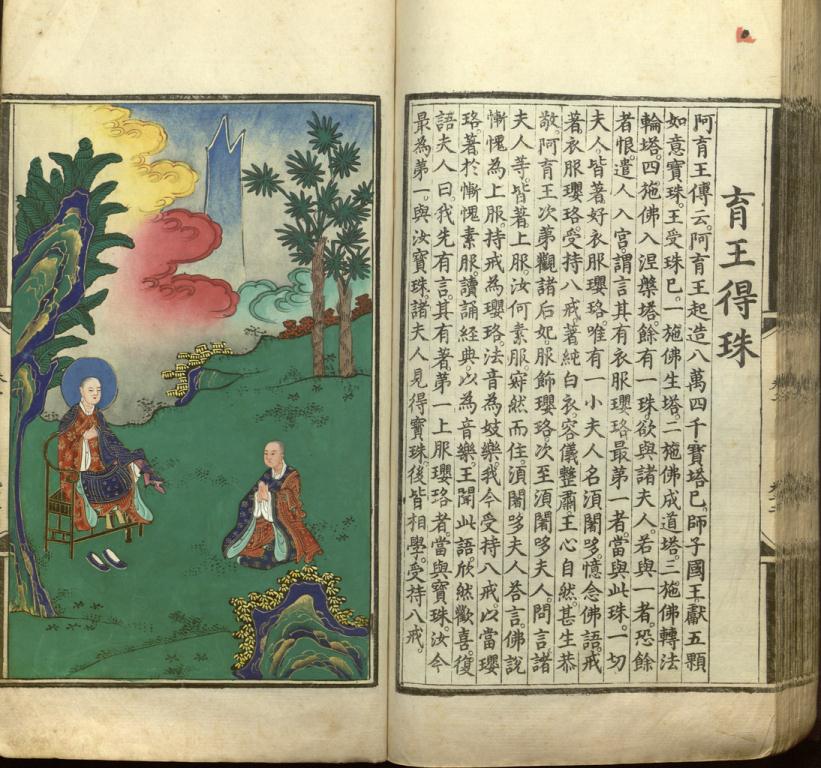 育王得珠
阿育王傳云。阿育王起造八萬四千寶塔已。師子國王獻五顆
如意寶珠。王受珠已。一施佛生塔。二施佛成道塔。三施佛轉法
輪塔。四施佛入涅槃塔。餘有一珠。欲與諸夫人。若與一者。恐餘
者恨。遣人入宮。謂言其有衣服瓔珞最第一者。當與此珠。一切
夫人。皆著好衣服瓔珞。唯有一小夫人名須闍哆。憶念佛語。戒
著衣服瓔珞。受持八戒。著純白衣。容儀整肅。王心自然。甚生恭
敬。阿育王次第觀諸后妃。服飾瓔珞。次至須闍哆夫人。問言。諸
夫人等。皆著上服。汝何素服。寂然而住。須闍哆夫人荅言。佛說
慚愧為上服。持戒為瓔珞。法音為妓樂。我今受持八戒。以當瓔
珞。著於慚愧素服。讀誦經典。以為音樂。王聞此語。欣然歡喜。復
語夫人曰。我先有言。其有著第一上服瓔珞者。當與寶珠。汝今
最為第一。與汝寶珠。諸夫人見得寶珠。後皆相學。受持八戒。